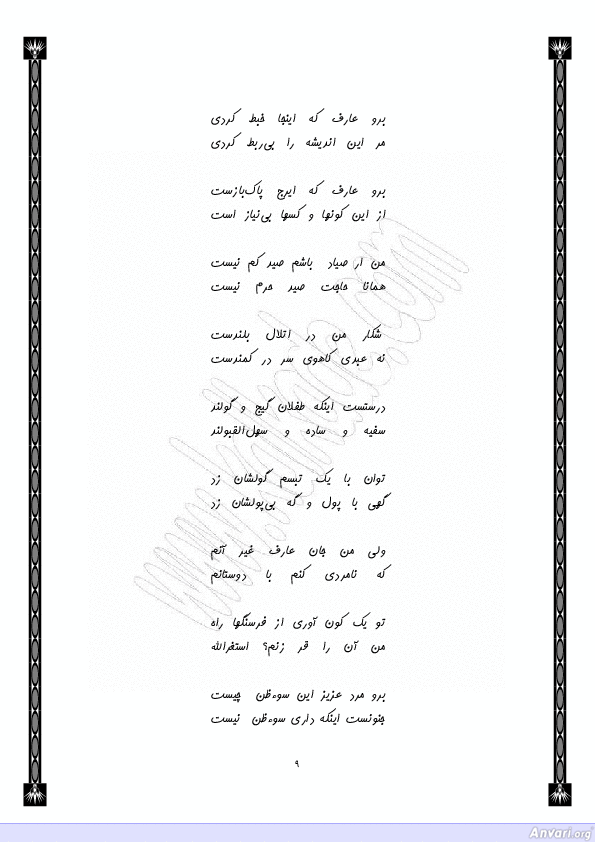 برو عارف که اینجا خبط کردی
مر این اندیشه را بی‌ربط کردی
برو عارف که ایرج پاک‌بازست
از این کونها و کسها بی‌نیاز است
من ار صیاد باشم صید کم نیست
همانا حاجت صید حرم نیست
شکار من در اتلال بلندست
نه عبدی کاهوی سر در کمندست
درستست اینکه طفلان گیج و گولند
سفیه و ساده و سهل‌القبولند
توان با یک تبسم گولشان زد
گهی با پول و گه بی‌پولشان زد
ولی من جان عارف غیر آنم
که نامردی کنم با دوستانم
تو یک کون آوری از فرسنگها راه
من آن را قر زنم؟ استغرالله
برو مرد عزیز این سوءظن چیست
جنونست اینکه داری سوءظن نیست
۹
www.ketabha.com
Anvari.org